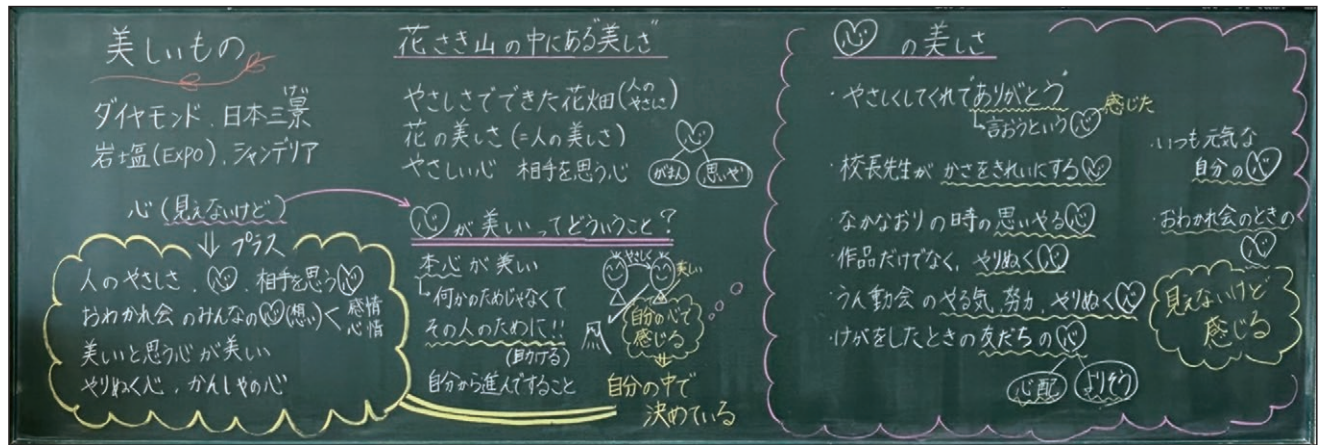 美しいもの
ダイヤモンド、日本三景
げい
岩塩(EXPO)、シャンデリア
心(見えないけど)
⇓ プラス
人のやさしさ、心、相手を思う心
おわかれ会のみんなの心(想い)く 感情
心情
美しいと思う心が美しい
やりぬく心、かんしゃの心
花さき山の中にある"美しさ"
やさしさでできた花畑(人のやさしさ)
花の美しさ(=人の美しさ)
心
やさしい心 相手を思う心 がまん 思いやり
心が美しいってどういうこと?
本心が美しい
何かのためじゃなくて
その人のために!!
(助ける)
自分から進んですること
やさしく
美しい
自分の心で
感じる
⇓
自分の中で
決めている
心の美しさ
・やさしくしてくれて"ありがとう"
言おうという心 感じた
・校長先生が かさをきれいにする心
・なかなおりの時の思いやる心
・作品だけでなく、やりぬく心
・うん動会のやる気、努力、やりぬく心
・けがをしたときの友だちの心
心配 よりそう
・いつも元気な
自分の心
・おわかれ会のときの
心
見えないけど
感じる